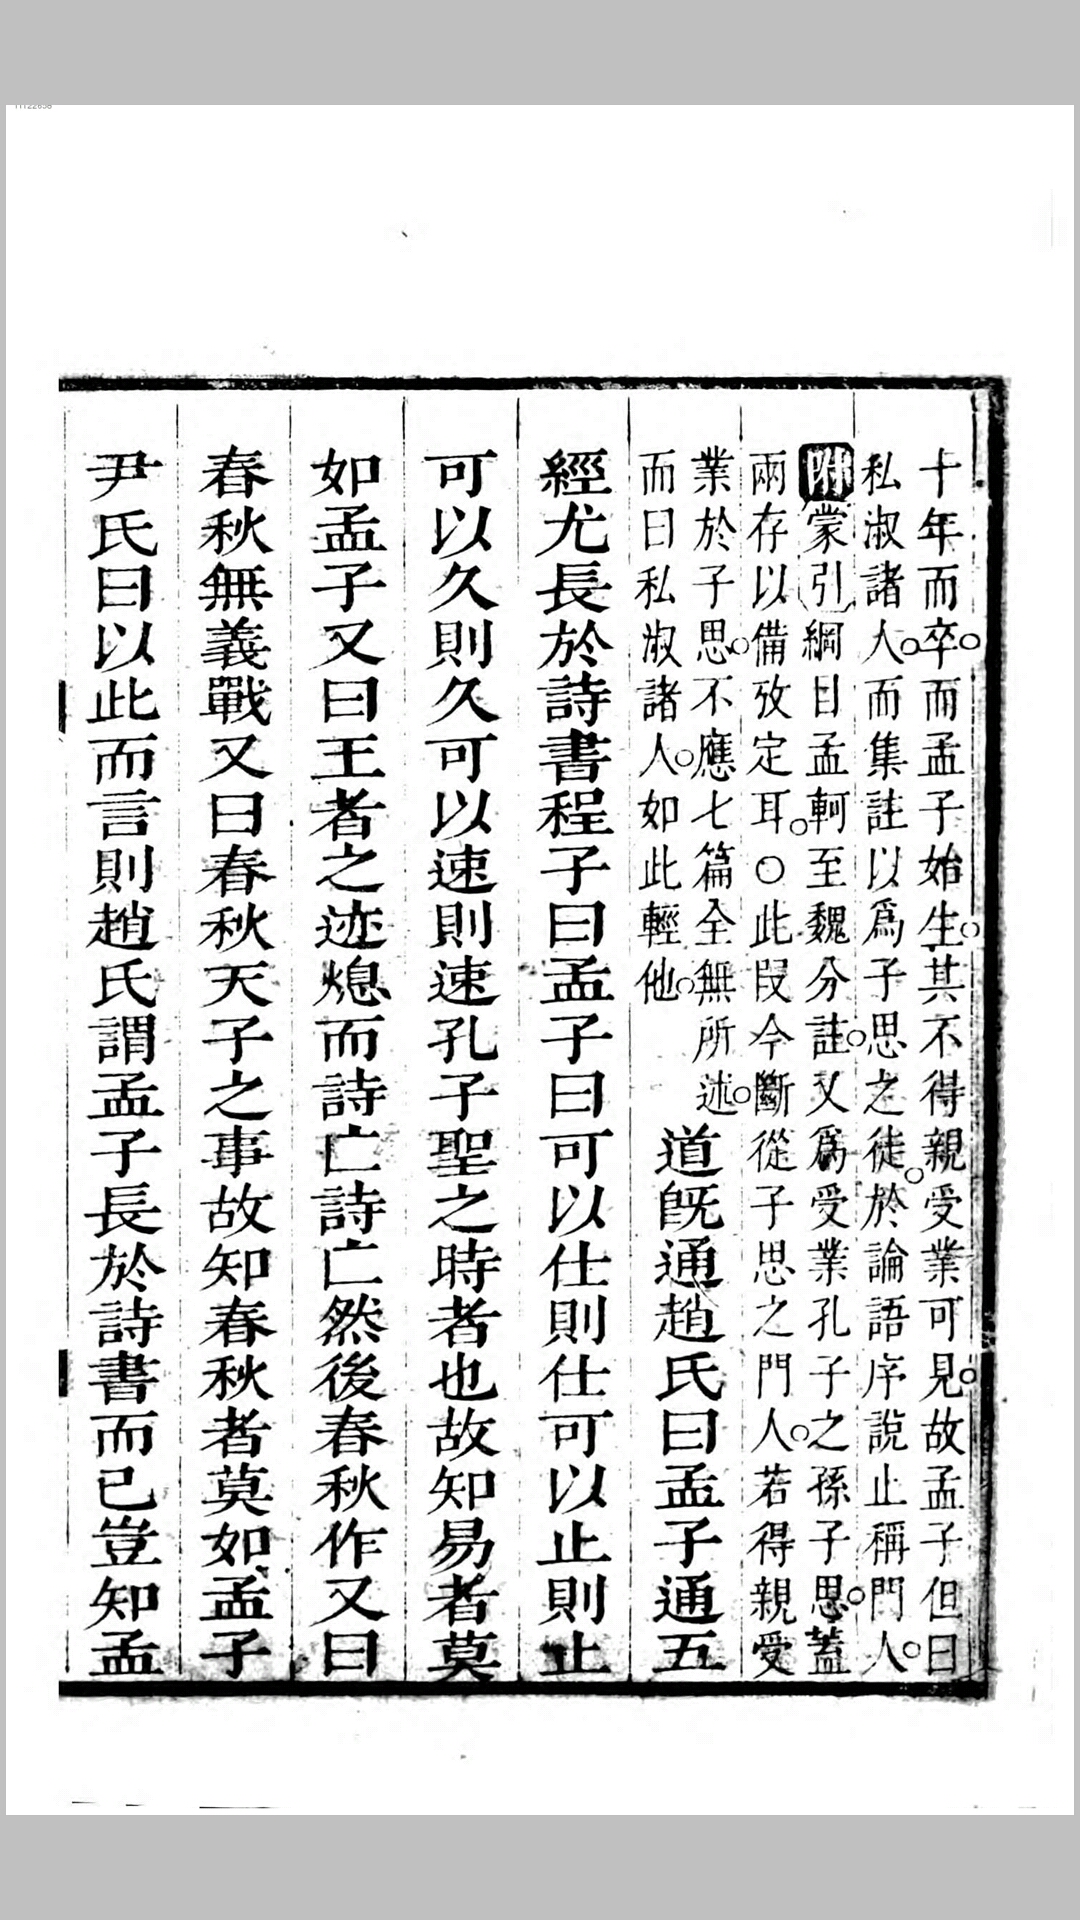 十年而卒○而孟子始生○其不得親受業可見○故孟子但曰
私淑諸人○而集註以爲子思之徒○於論語序說止稱門人○
附蒙引綱目孟軻至魏分註○又爲受業孔子之孫子思○蓋
兩存以備攷定耳○○此段今斷從子思之門人○若得親受
業於子思○不應七篇全無所述○
而曰私淑諸人○如此輕他○
道旣通趙氏曰孟子通五
經尤長於詩書程子曰孟子曰可以仕則仕可以止則止
可以久則久可以速則速孔子聖之時者也故知易者莫
如孟子又曰王者之迹熄而詩亡詩亡然後春秋作又曰
春秋無義戰又曰春秋天子之事故知春秋者莫如孟子
尹氏曰以此而言則趙氏謂孟子長於詩書而已豈知孟